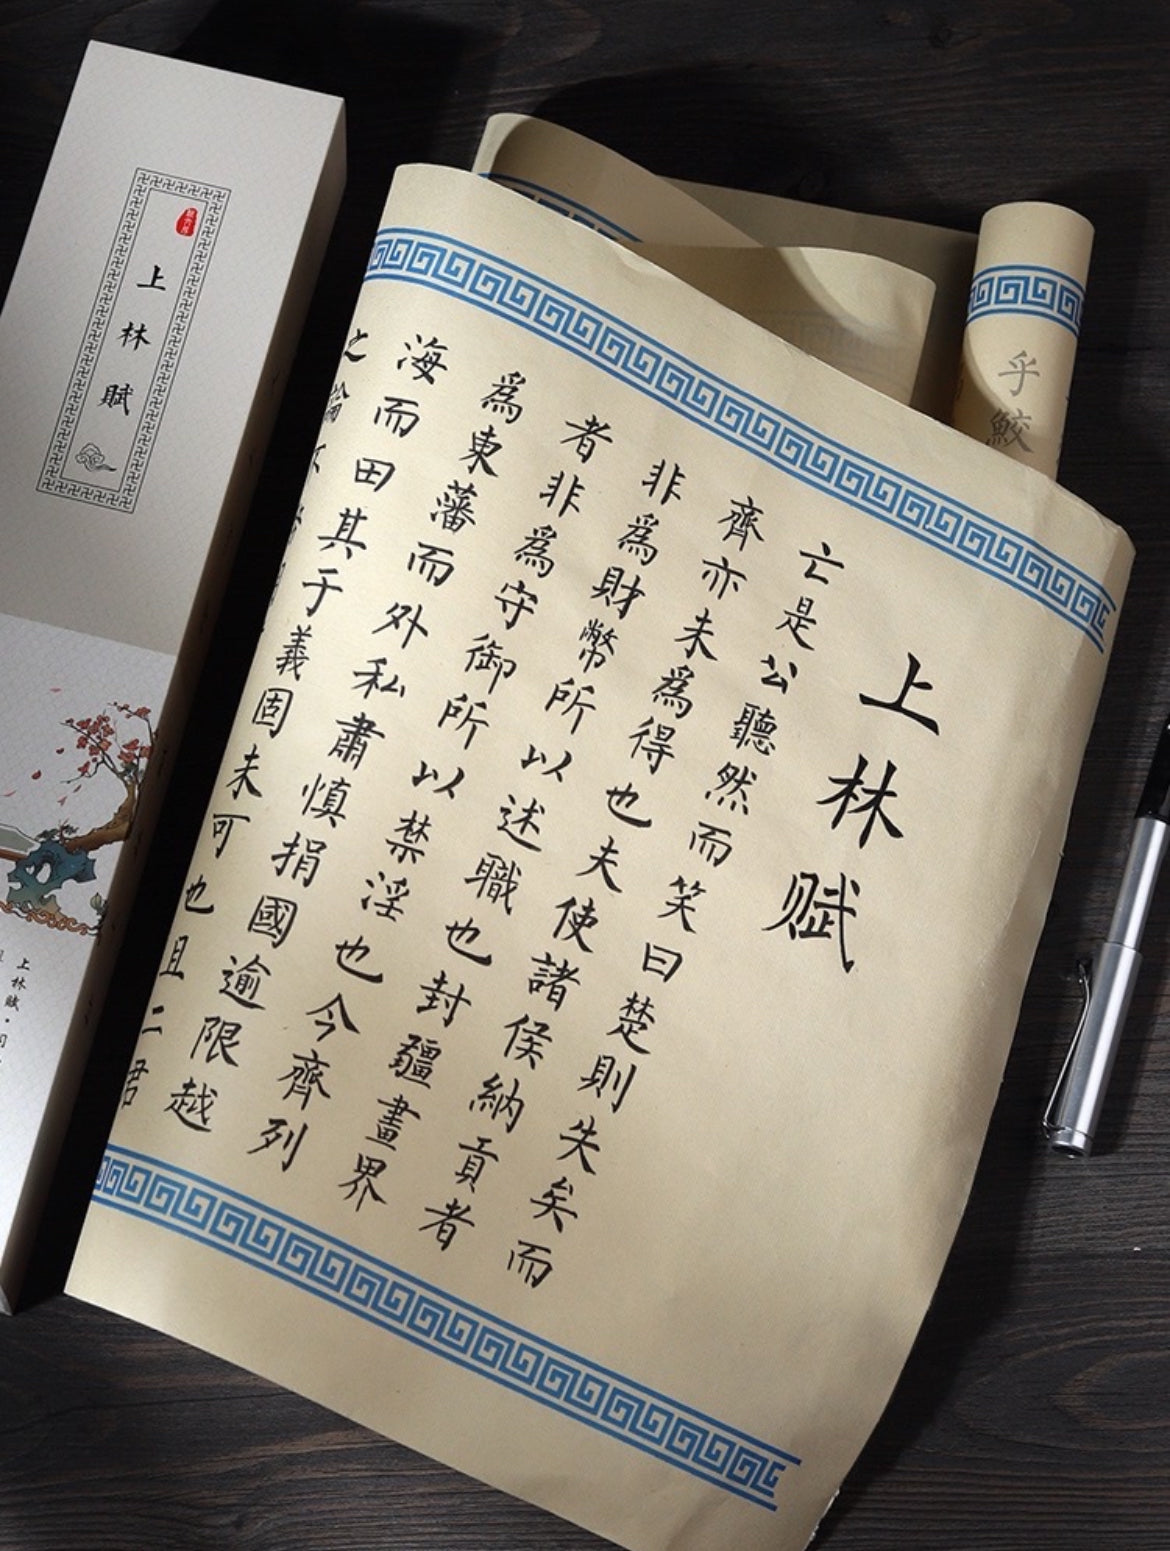 上林赋
亡是公聽然而笑曰楚則失矣而
齊亦未爲得也夫使諸侯納貢者
非爲財幣所以述職也封疆畫界
者非爲守御所以禁淫也今齊列
爲東藩而外私肅慎捐國逾限越
海而田其于義固未可也且二君
之論
乎鮫
上林賦
上林賦·